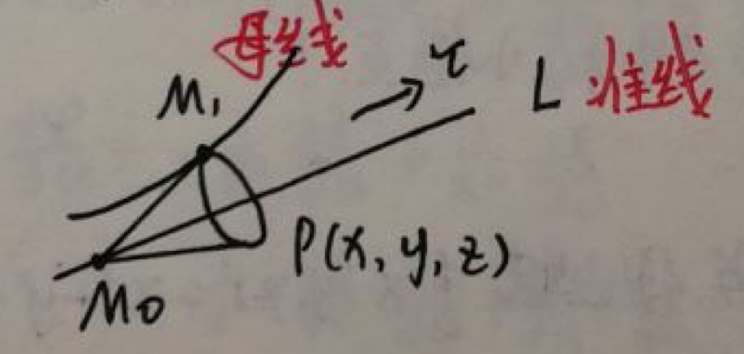 母线
M₁
τ
L 准线
P(x, y, z)
M₀